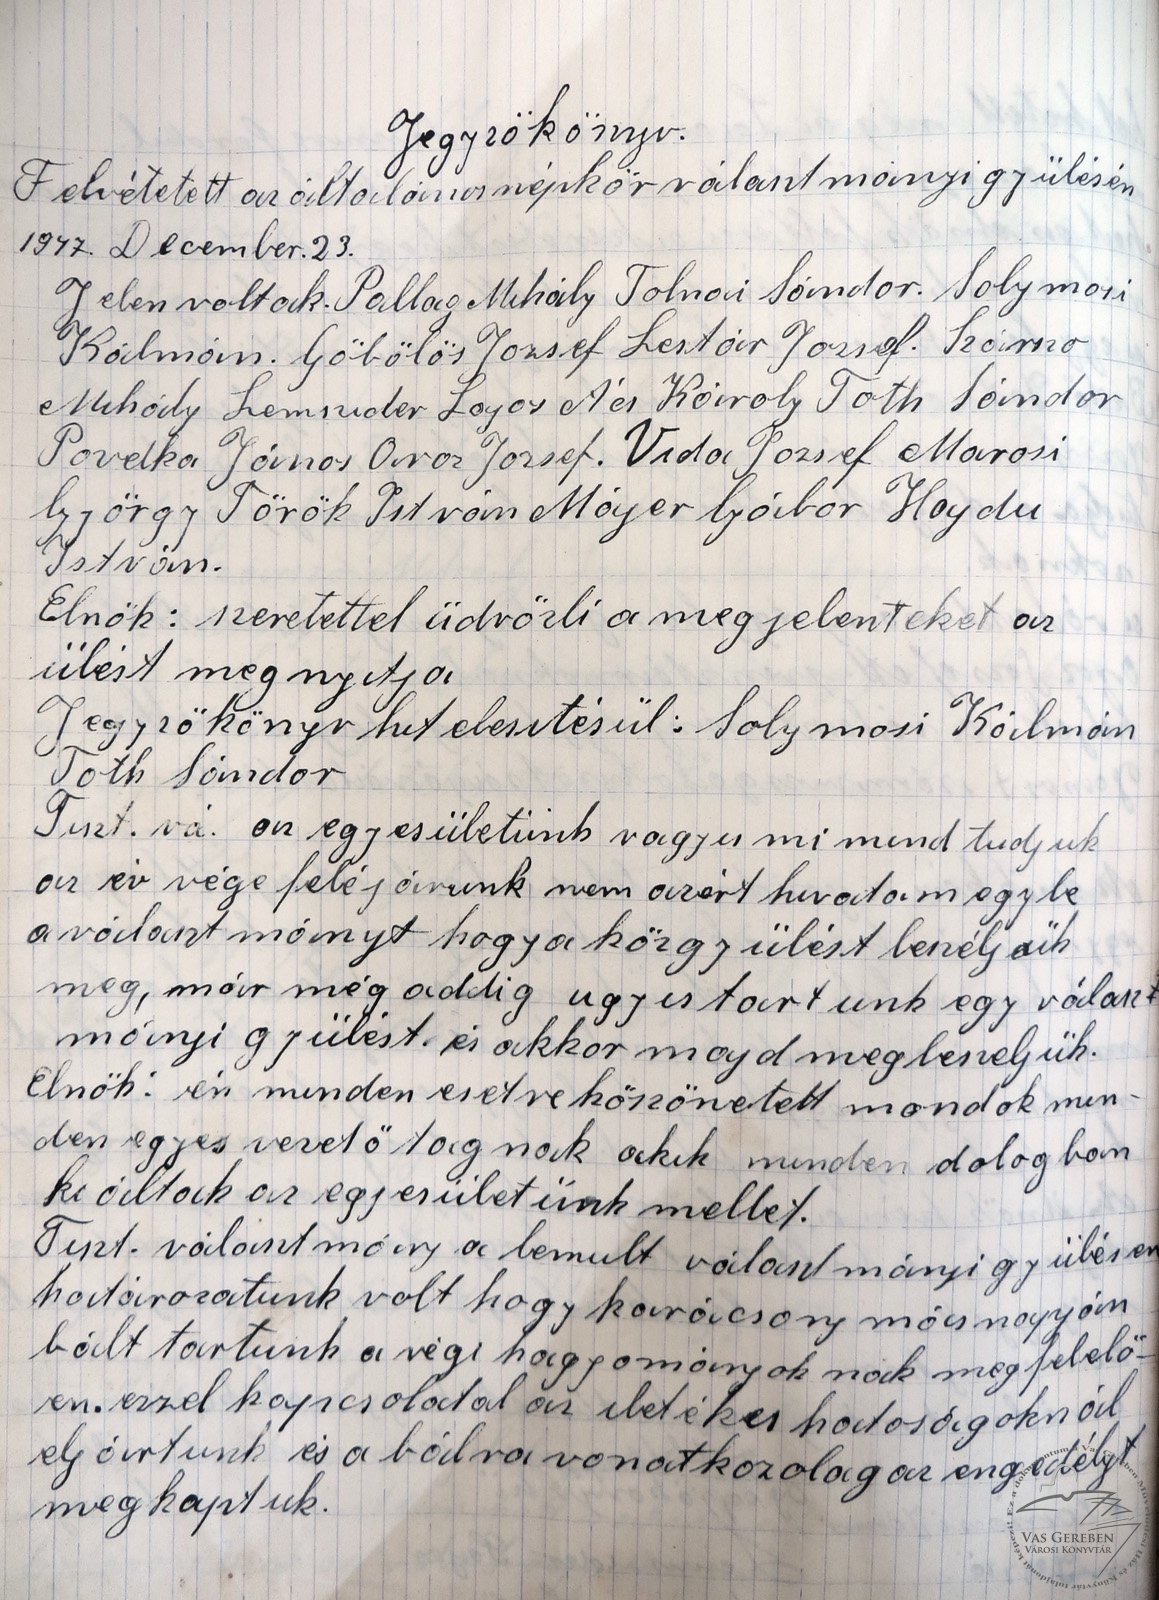 Jegyzőkönyv.
Felvétetett az általános népkör választmányi gyülésén
1947. December. 23.
Jelen voltak. Pallag Mihály Tolnai Sándor. Solymosi
Kálmán. Göbölös Jozsef Lestár Jozsef. Száraz
Mihály Lajos Ács Károly Toth Sándor
Povelka János Avar Jozsef. Vida Jozsef Marosi
György Török István Májer Gjábor Hajdu
István.
Elnök: szeretettel üdvözli a megjelenteket az
ülést megnyitja
Jegyzőkönyv hitelesitésül: Solymosi Kálmán
Toth Sándor
Tiszt. vá. az egyesületünk vagyis mi mind tudjuk
az év vége feléjárunk nem azért hivatam egybe
a választmányt hogy a közgyülést beszéljük
meg, már még addig ugyis tartunk egy választ
mányi gyülést. és akkor majd megbeszeljük.
Elnök: én minden esetre köszönetett mondok min-
den egyes vezető tagnak akik minden dologban
ki áltak az egyesületünk mellet.
Tiszt. választmány a lemult választmányi gyülésen
határozatunk volt hogy karácsony másnapján
bált tartunk a régi hagyományok nak megfelelő-
en. ezzel kapcsolatal az iletékes hatoságoknál
eljártunk és a bálra vonatkozolag az engedélyt
megkaptuk.
VAS GEREBEN
VÁROSI KÖNYVTÁR